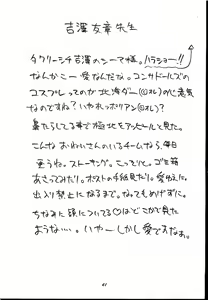 吉澤友章先生
タクリーシチ吉澤のシーマ様。ハラショー!!
なんかこー愛なんだな。コンサドールズの
コスプレってのが北海ダー(@オレ)の心意気
なのですね?いやれっポリアン(@オレ)?
暮たらしてる事で極北をアッピールと見た。
こんな おねいさんのいるチームなら、毎日
通うね。ストーキング。こってりと。ゴミ箱
あさってみたり。ポストの手紙見たり。愛ゆえに。
出入り禁止になるまで。なってもめげずに。
ちなみに頭についてる○はどこかで見た
ような…。いやーしかし愛ですなぁ。